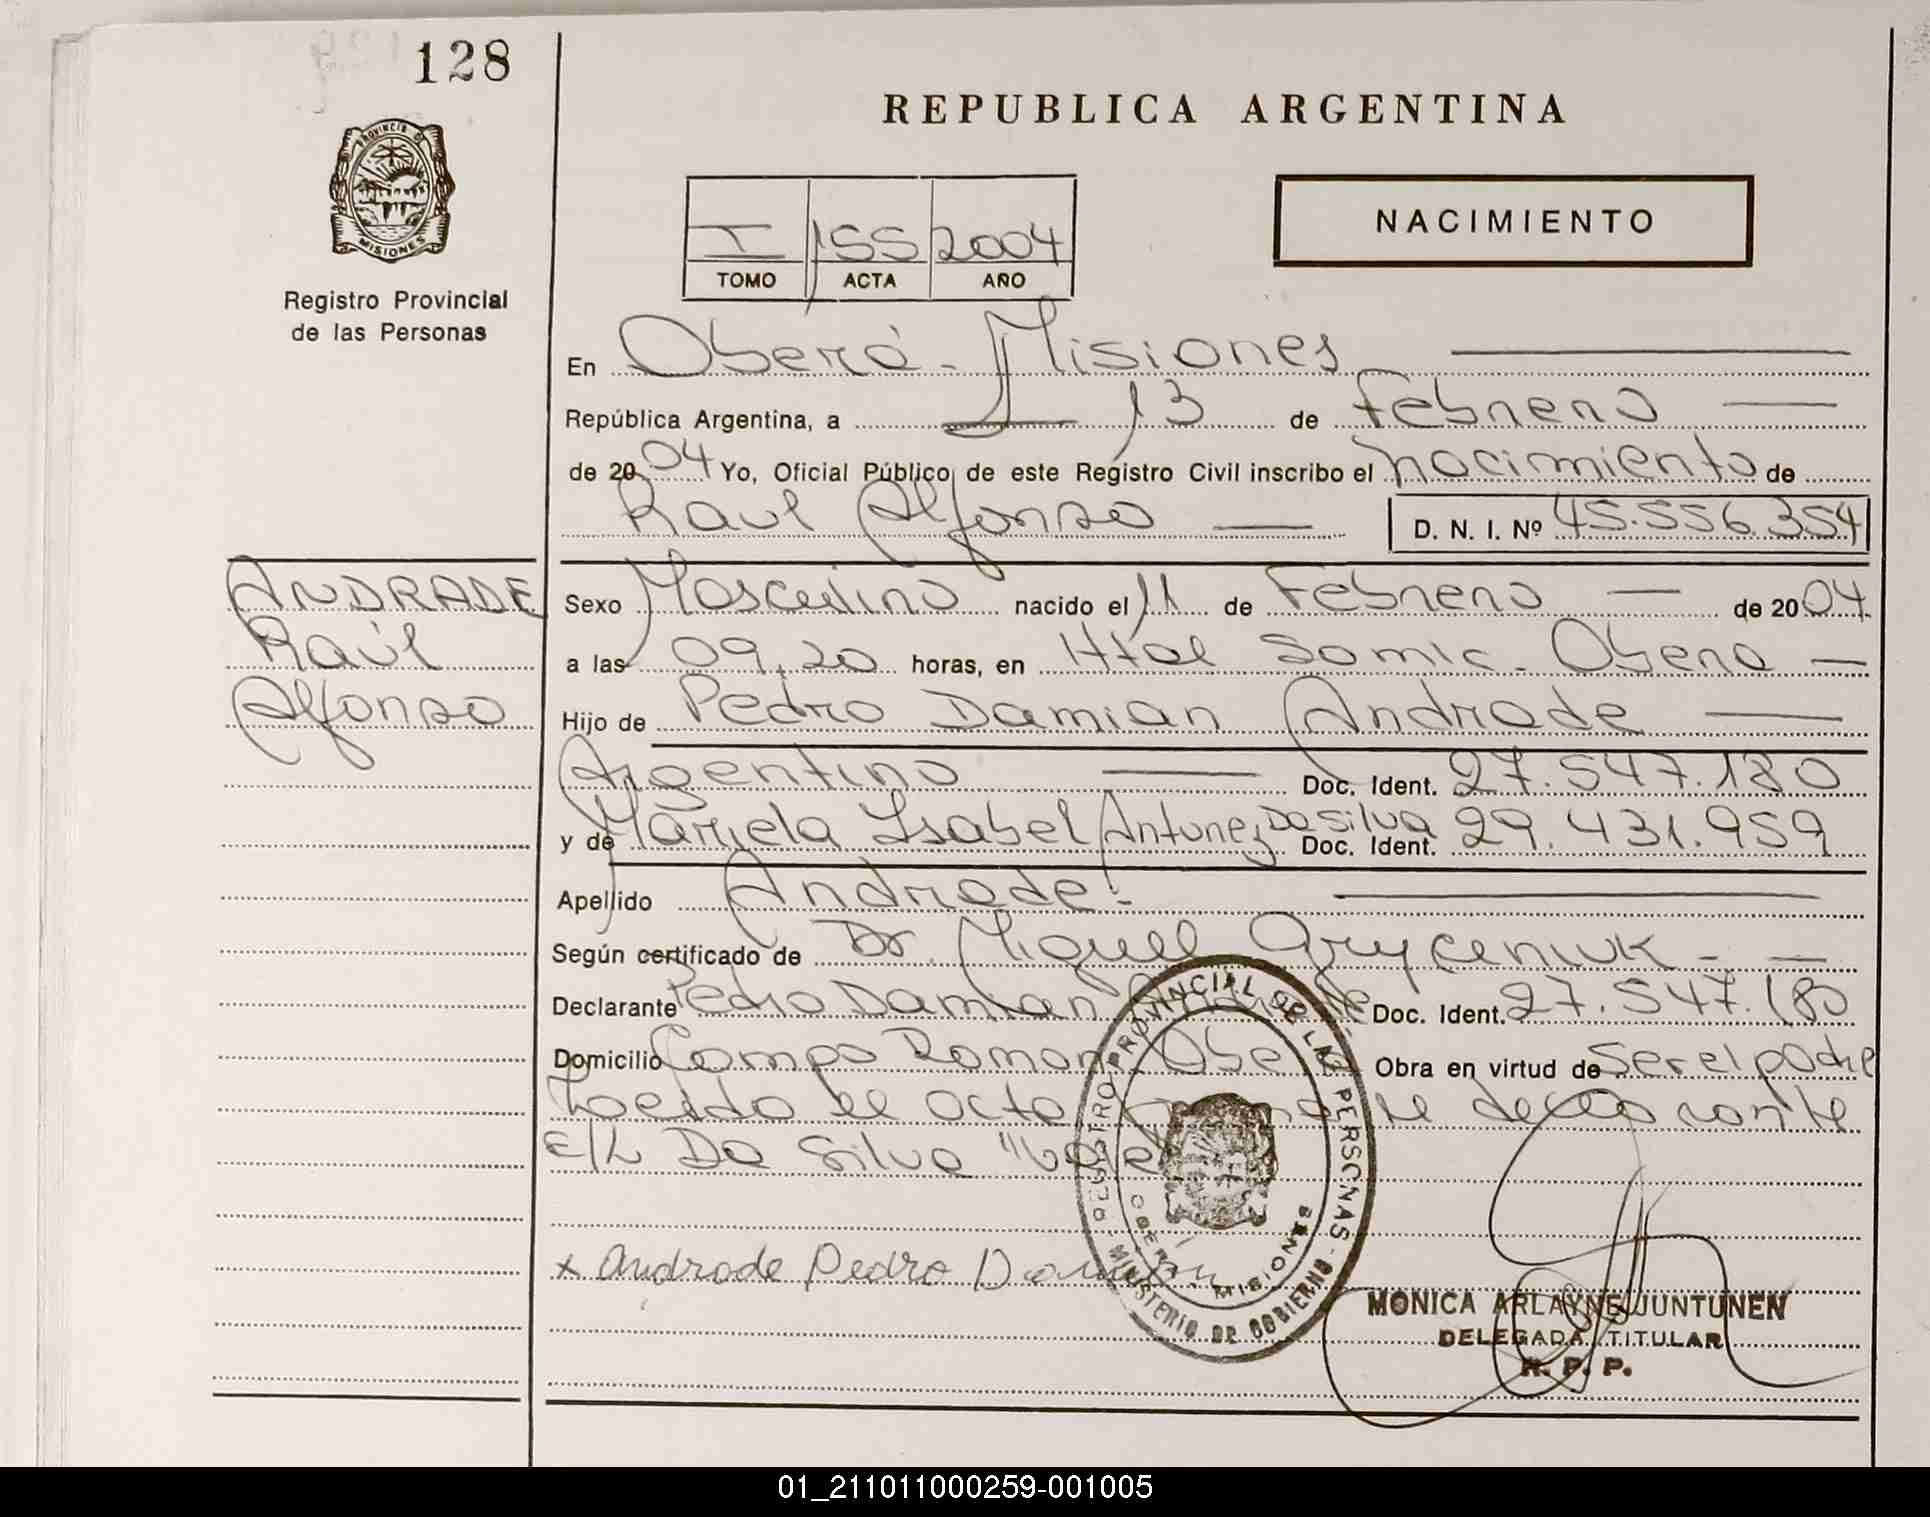 128
REPUBLICA ARGENTINA
PROVINCIA DE
MISIONES
NACIMIENTO
I 155 2004
TOMO ACTA AÑO
Registro Provincial
de las Personas
En Oberá - Misiones
República Argentina, a 13 de Febrero
de 2004 Yo, Oficial Público de este Registro Civil inscribo el nacimiento de
Raul Alfonso D. N. I. Nº 45.556.354
ANDRADE
Raúl
Alfonso
Sexo Masculino nacido el 11 de Febrero de 2004
a las 09,20 horas, en Htal Samic - Obera
Hijo de Pedro Damian Andrade
Argentino Doc. Ident. 27.547.180
y de Mariela Isabel Antunez Da Silva Doc. Ident. 29.431.959
Apellido Andrade.-
Según certificado de Dr. Miguel
Declarante Pedro Damian Andrade Doc. Ident. 27.547.180
Domicilio Campo Ramon Obera Obra en virtud de ser el padre
el acta
E/L Da Silva "Vale"
x Andrade Pedro Damian
REGISTRO PROVINCIAL DE LAS PERSONAS - MINISTERIO DE GOBIERNO
OBERA - MISIONES
MONICA ARLAYNE JUNTUNEN
DELEGADA TITULAR
R. P. P.
01_211011000259-001005